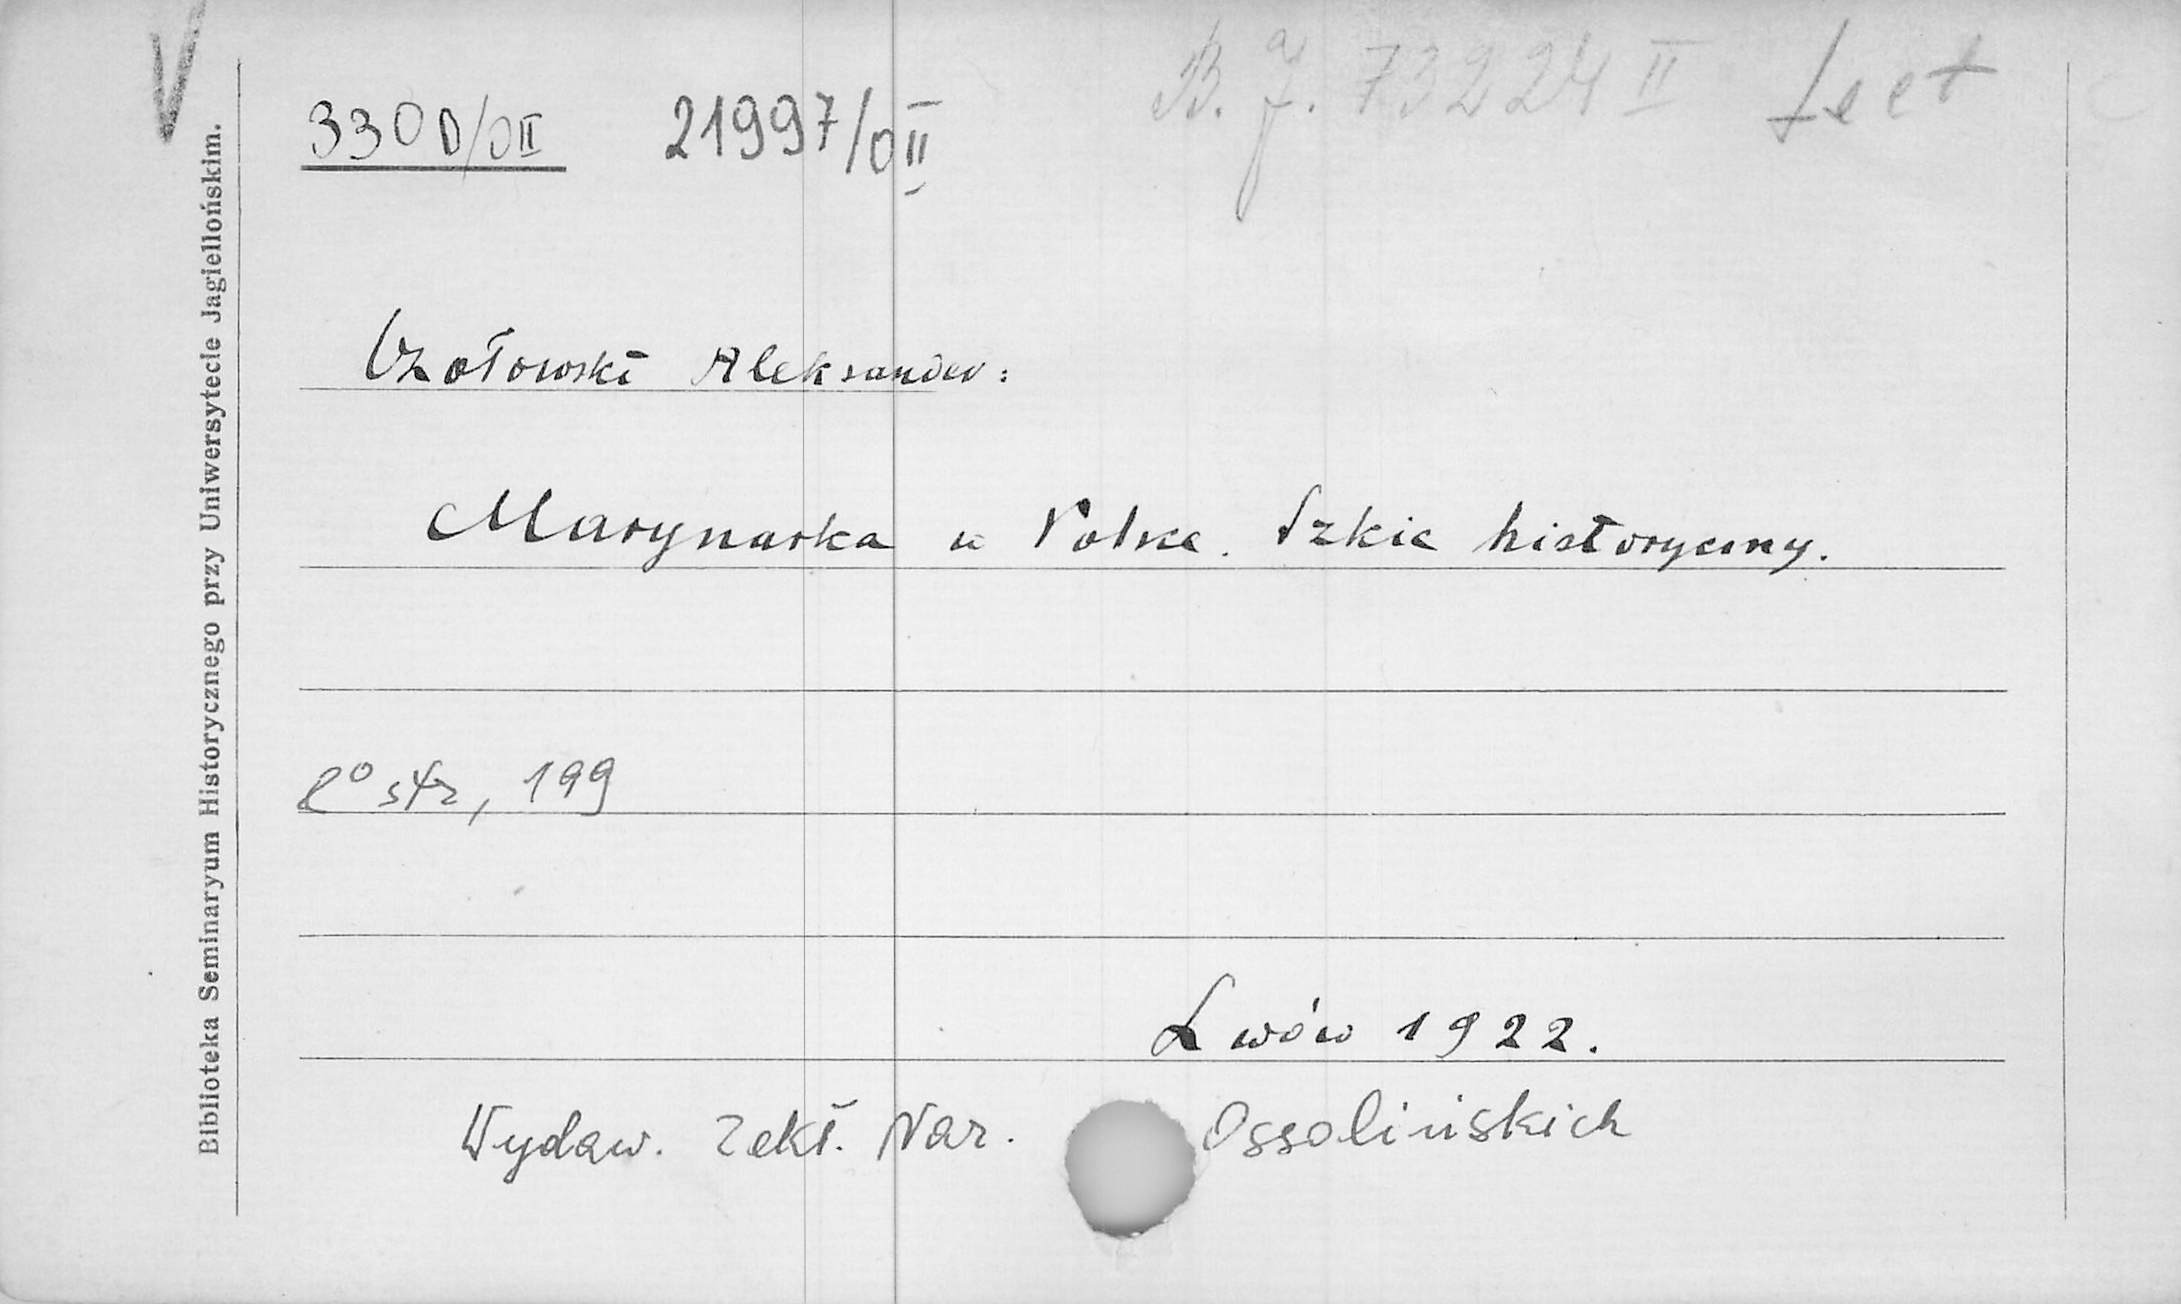 V
330 D/OII 21997/OII B. J. 73224 II
Czołowski Aleksander:
Marynarka w Polsce. Szkic historyczny.
8° str, 199
Lwów 1922.
Wydaw. Zakł. Nar. Ossolińskich
Biblioteka Seminaryum Historycznego przy Uniwersytecie Jagiellońskim.